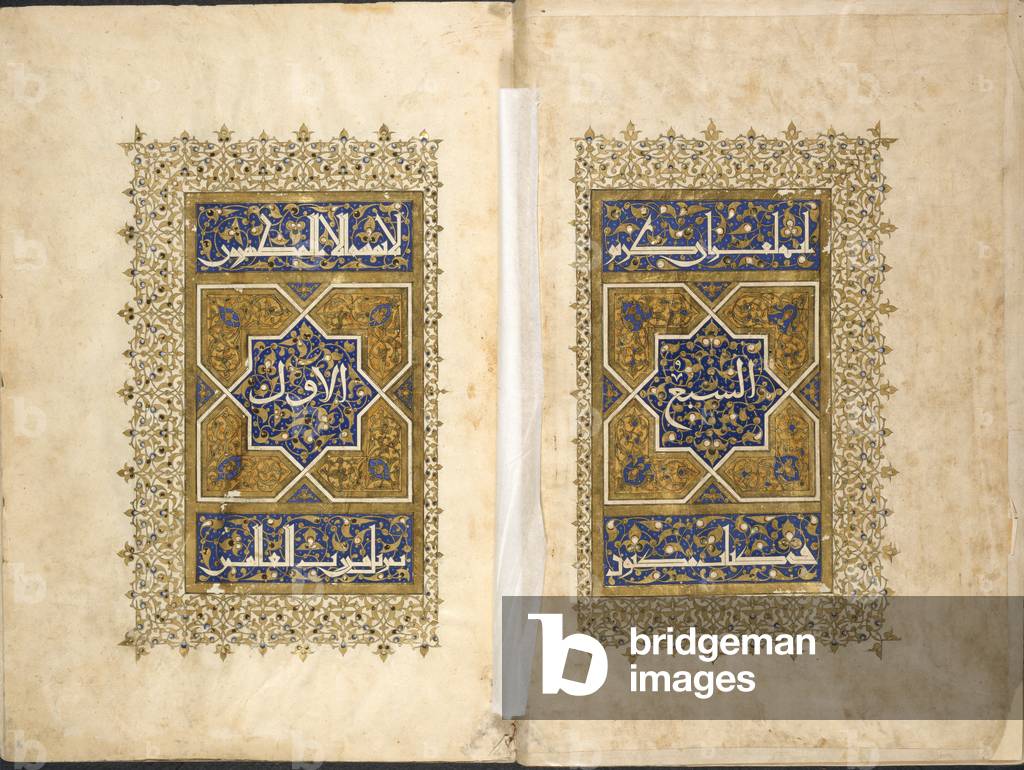 انه لقران كريم
السبع
في كتاب مكنون
لا يمسه الا المطهرون
الاول
تنزيل من رب العالمين
bridgeman
images